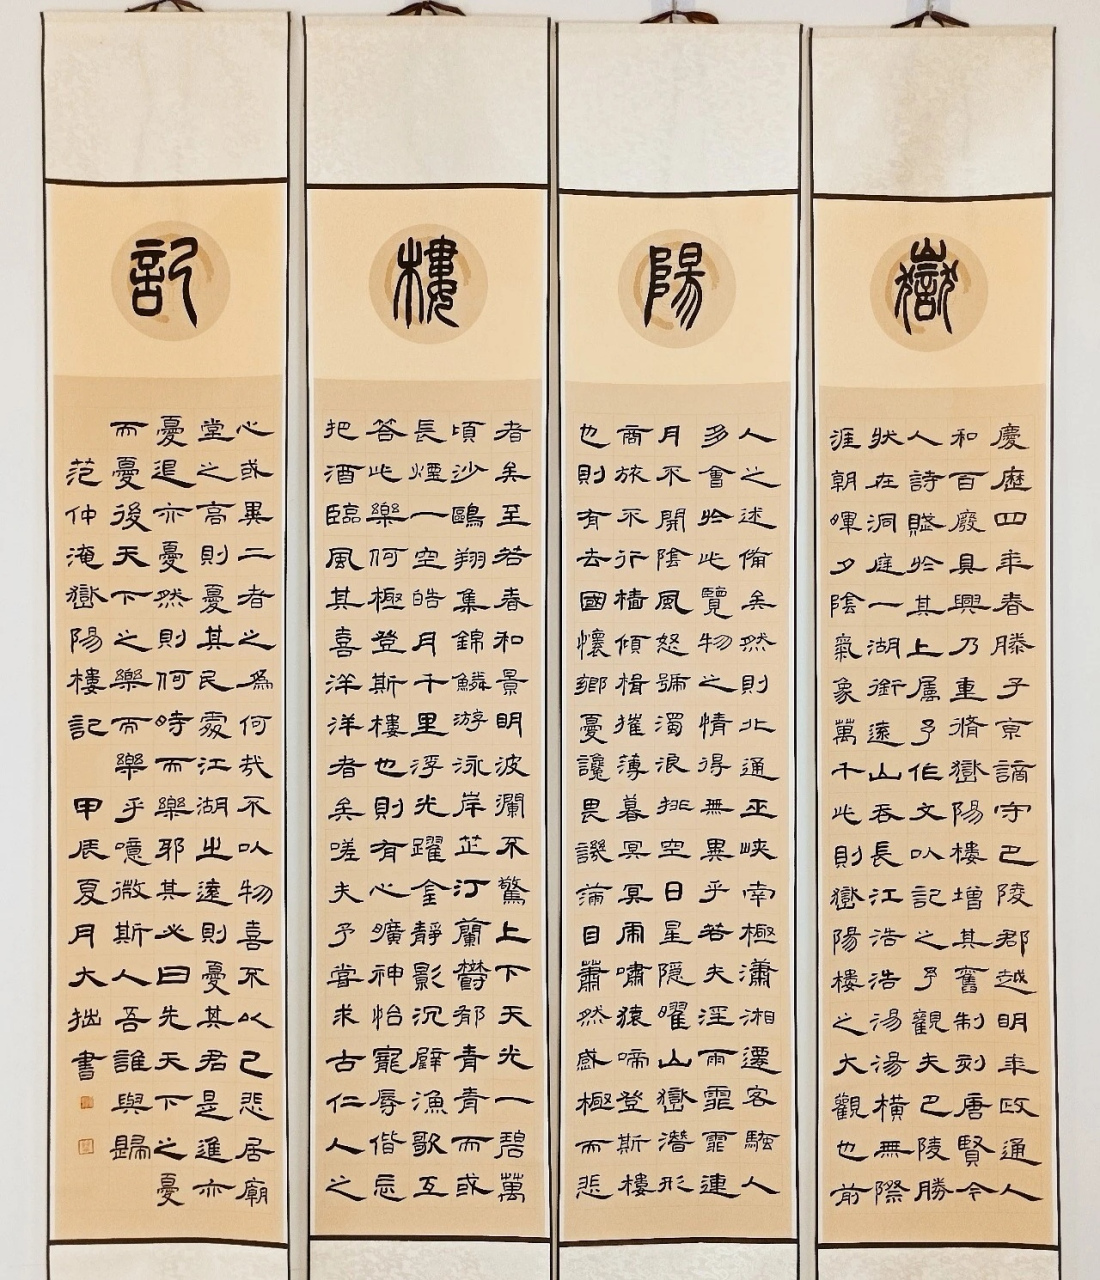 嶽
慶歷四年春滕子京謫守巴陵郡越明年政通人
和百廢具興乃重脩嶽陽樓增其舊制刻唐賢今
人詩賦於其上属予作文以記之予觀夫巴陵勝
狀在洞庭一湖銜遠山吞長江浩浩湯湯橫無際
涯朝暉夕陰氣象萬千此則嶽陽樓之大觀也前
陽
人之述備矣然則北通巫峽南極瀟湘遷客騷人
多會於此覽物之情得無異乎若夫淫雨霏霏連
月不開陰風怒號濁浪排空日星隱曜山嶽潛形
商旅不行檣傾楫摧薄暮冥冥虎嘯猿啼登斯樓
也則有去國懷鄉憂讒畏譏滿目蕭然感極而悲
樓
者矣至若春和景明波瀾不驚上下天光一碧萬
頃沙鷗翔集錦鱗游泳岸芷汀蘭鬱郁青青而或
長煙一空皓月千里浮光躍金靜影沉璧漁歌互
答此樂何極登斯樓也則有心曠神怡寵辱偕忘
把酒臨風其喜洋洋者矣嗟夫予嘗求古仁人之
記
心或異二者之爲何哉不以物喜不以己悲居廟
堂之高則憂其民處江湖之遠則憂其君是進亦
憂退亦憂然則何時而樂耶其必曰先天下之憂
而憂後天下之樂而樂乎噫微斯人吾誰與歸
范仲淹嶽陽樓記 甲辰夏月大拙書